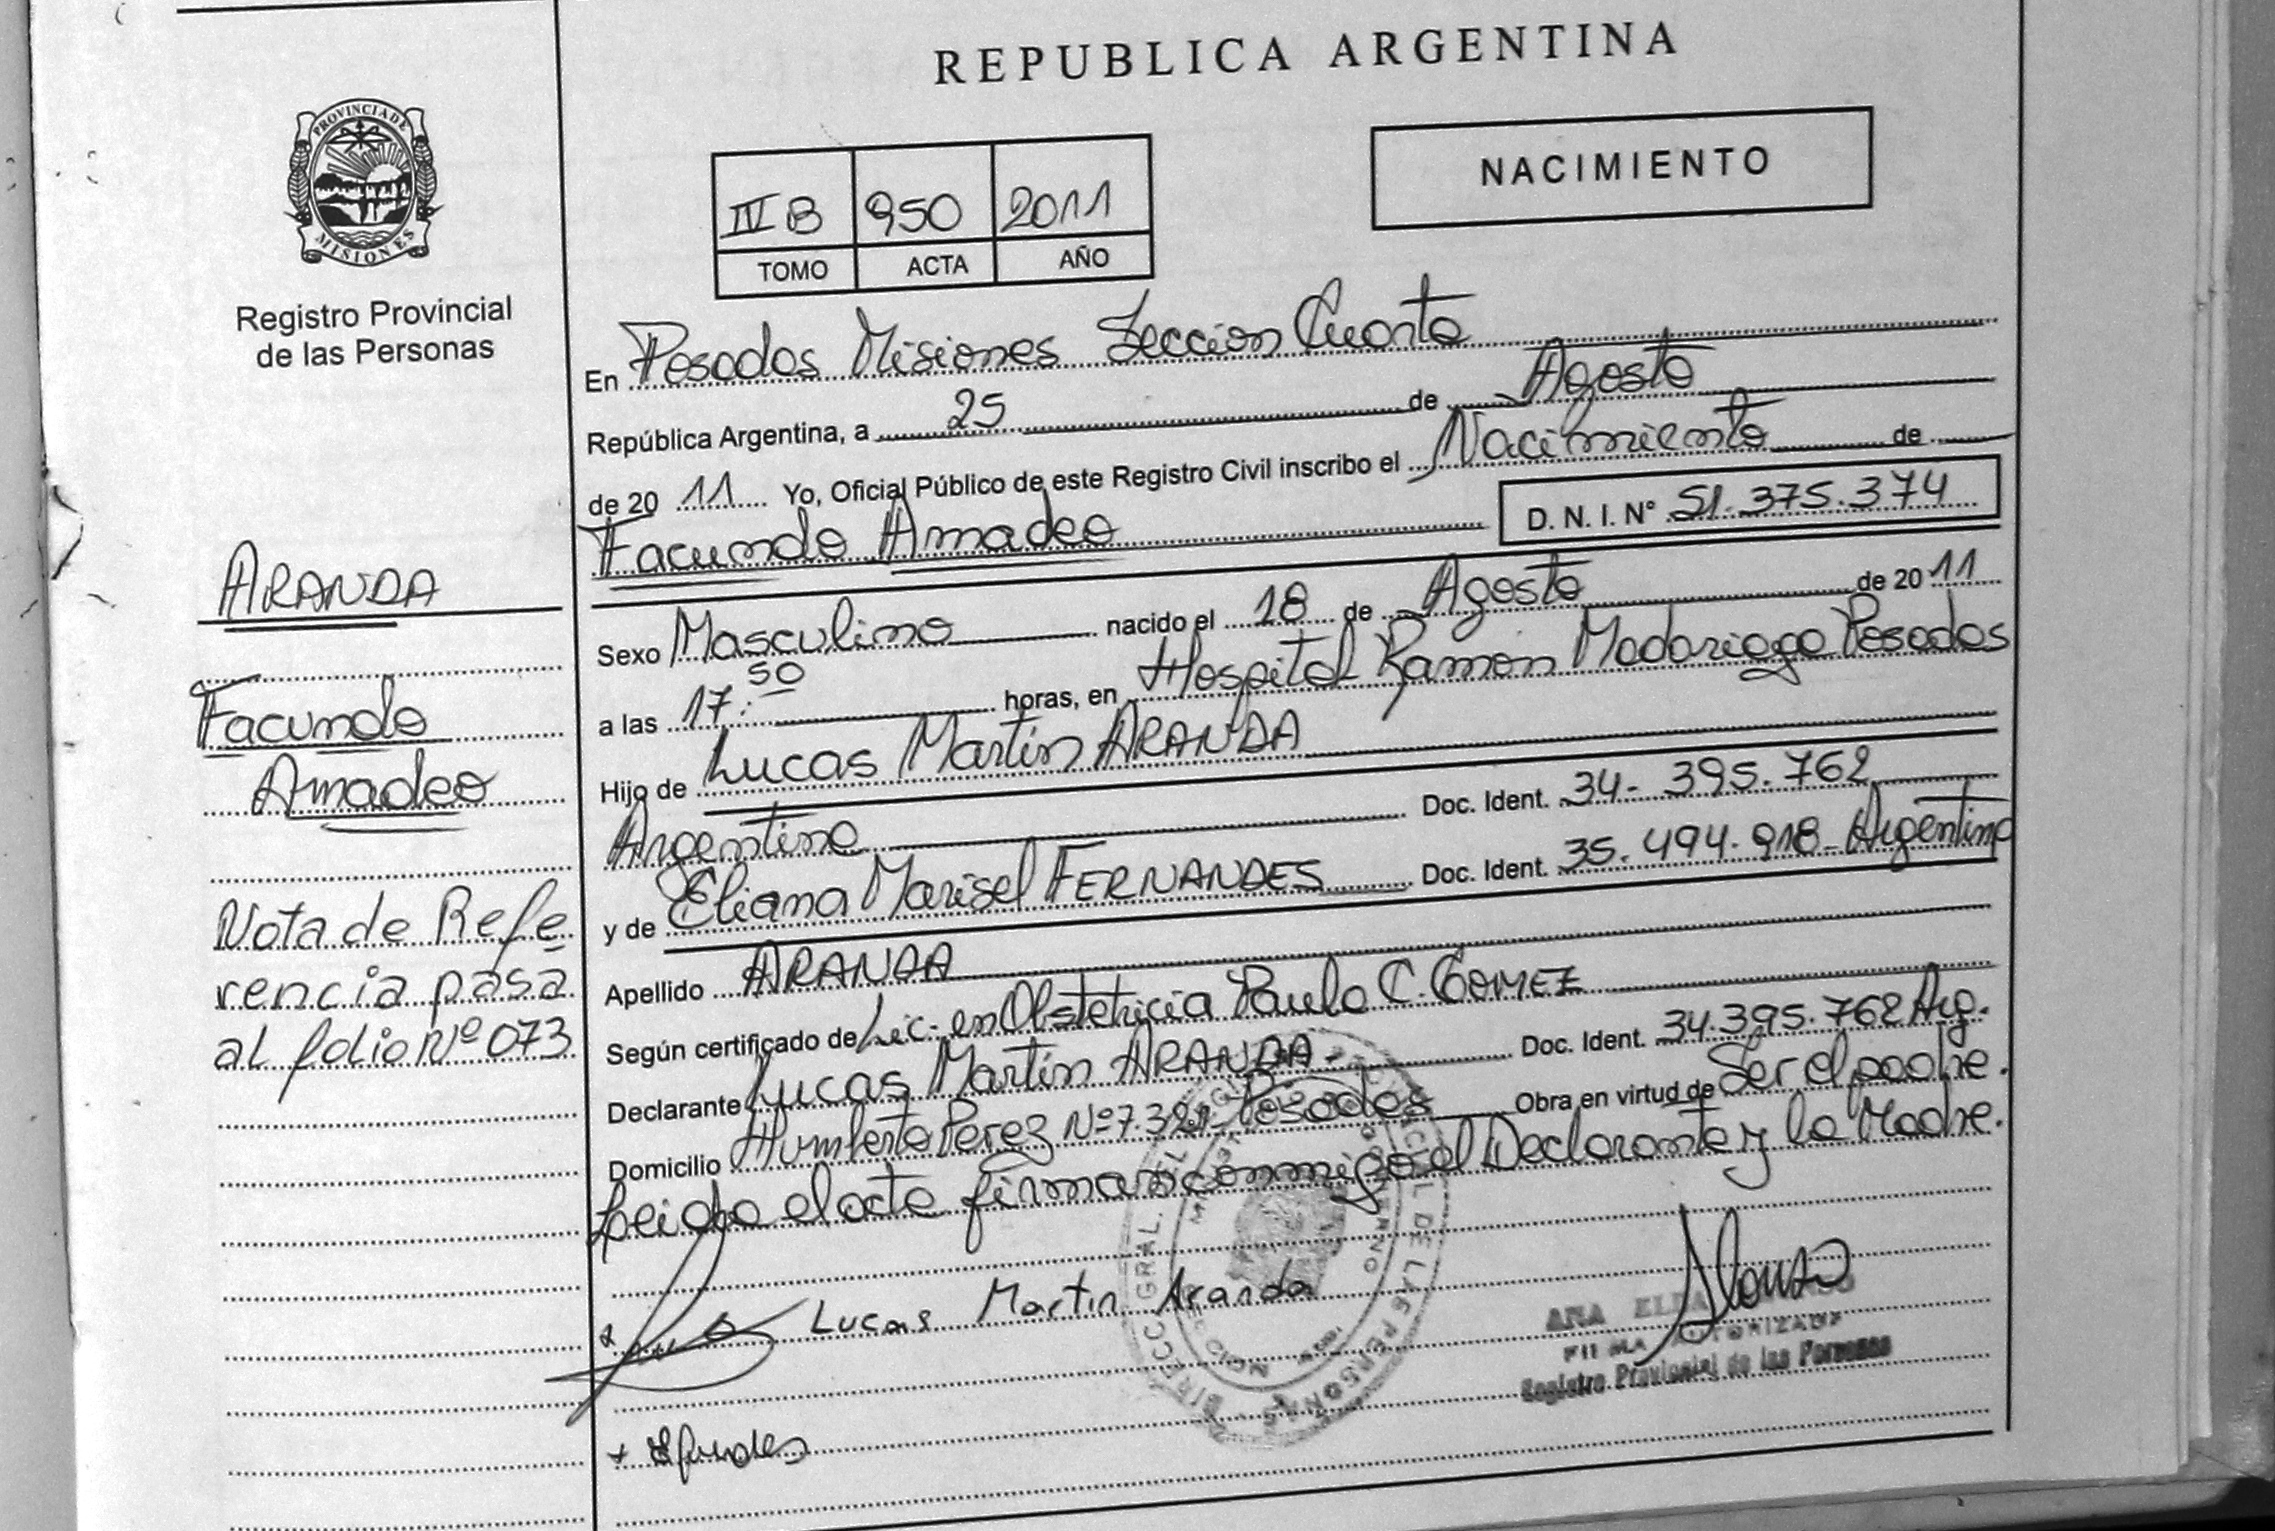 REPUBLICA ARGENTINA
PROVINCIA DE
MISIONES
Registro Provincial
de las Personas
NACIMIENTO
IV B 950 2011
TOMO ACTA AÑO
En Posadas Misiones Sección Cuarta
República Argentina, a 25 de Agosto
de 20 11 Yo, Oficial Público de este Registro Civil inscribo el Nacimiento de
Facundo Amadeo D. N. I. Nº 51.375.374
Sexo Masculino nacido el 18 de Agosto de 20 11
a las 17:50 horas, en Hospital Ramón Madariaga Posadas
Hijo de Lucas Martín ARANDA
Argentino Doc. Ident. 34-395.762
y de Eliana Marisel FERNANDES Doc. Ident. 35.494.918-Argentina
Apellido ARANDA
Según certificado de Lic. en Obstetricia Paula C. GOMEZ
Declarante Lucas Martín ARANDA- Doc. Ident. 34.395.762 Arg.
Domicilio Humberto Perez Nº 7.321- Posadas Obra en virtud de Ser el padre.
Leida el acta firman conmigo el Declarante y la Madre.
Lucas Martin Aranda
ARANDA
Facundo
Amadeo
Nota de Refe
rencia pasa
al folio Nº 073
ANA ELDA
FIRMA AUTORIZADA
Registro Provincial de las Personas